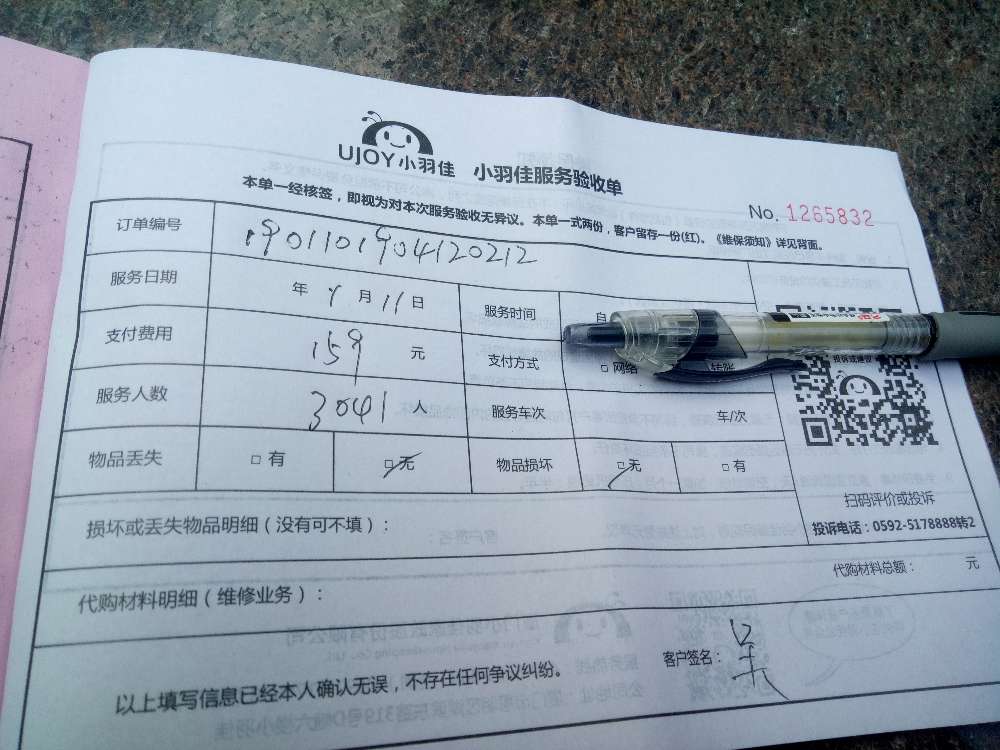 UJOY小羽佳 小羽佳服务验收单
No. 1265832
本单一经核签，即视为对本次服务验收无异议。本单一式两份，客户留存一份(红)。《维保须知》详见背面。
订单编号 1901101904120212
服务日期 年 月 11 日 服务时间 自
支付费用 159 元 支付方式 □ 网络 转账
服务人数 3041 人 服务车次 车/次
物品丢失 □ 有 □ 无 物品损坏 □ 无 □ 有
投诉或建议
扫码评价或投诉
投诉电话：0592-5178888转2
损坏或丢失物品明细（没有可不填）：
代购材料明细（维修业务）： 代购材料总额： 元
以上填写信息已经本人确认无误，不存在任何争议纠纷。 客户签名：